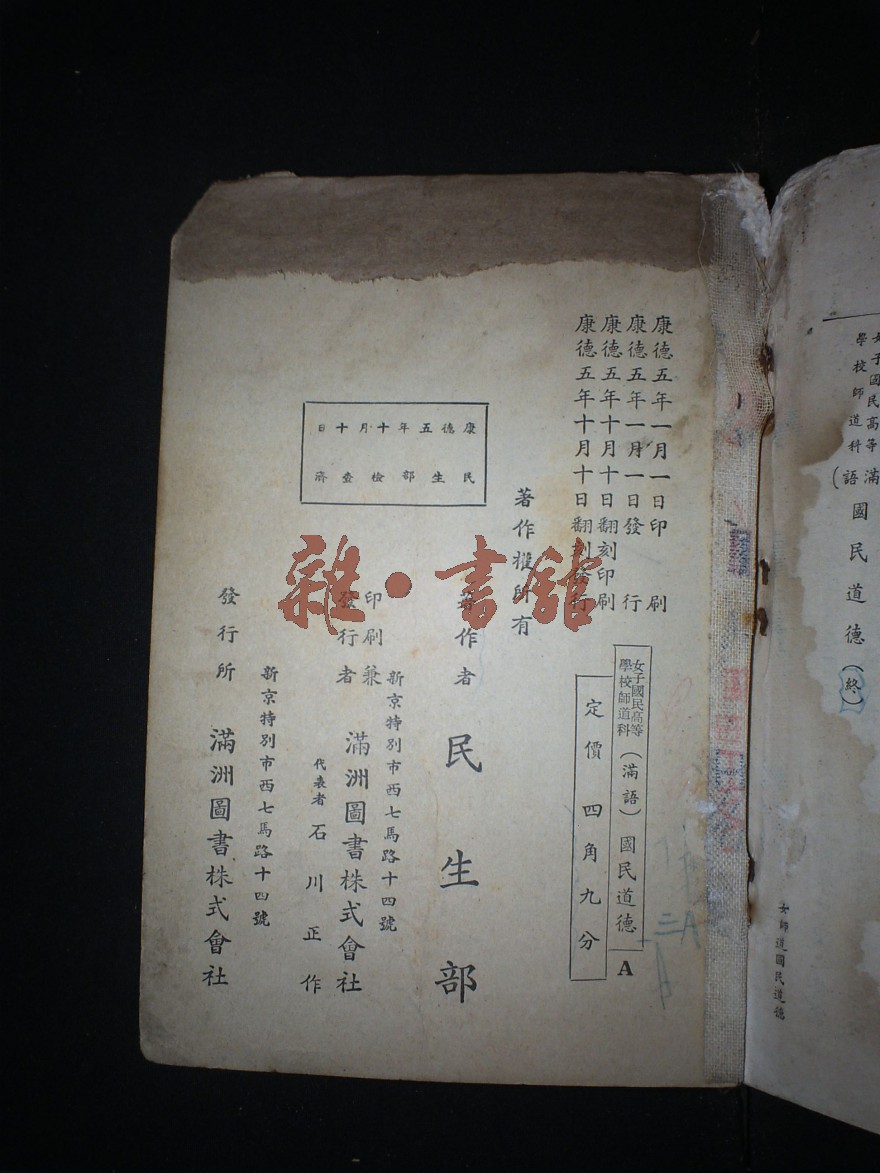 女子國民高等
學校師道科
滿
語)
國民道德(終)
女師道國民道德
康德五年一月一日印刷
康德五年一月一日發行
康德五年十月十日翻刻印刷
康德五年十月十日翻刻發行
女子國民高等
學校師道科
(滿語)國民道德 A
定價四角九分
著作權所有
康德五年十月十日
民生部檢查濟
著作者 民生部
新京特別市西七馬路十四號
印刷兼
發行者
滿洲圖書株式會社
代表者 石川正作
新京特別市西七馬路十四號
發行所 滿洲圖書株式會社
雜·書舘